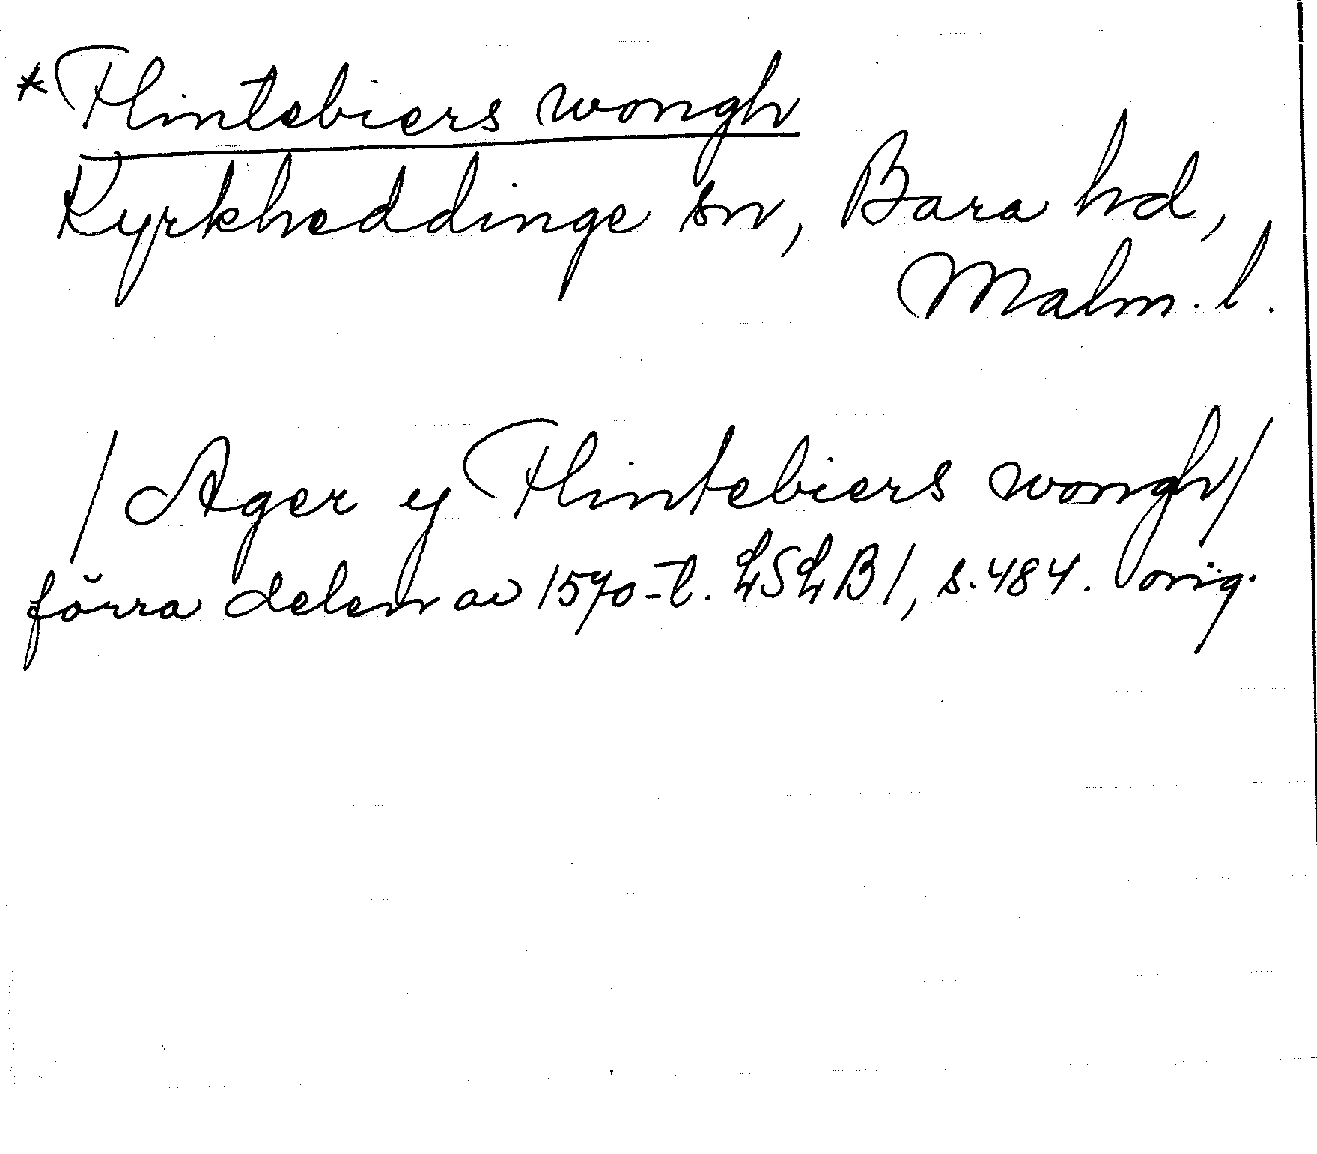 *Flintebiers wongh
Kyrkheddinge sn, Bara hd,
Malm. l.
/ Ager y Flintebiers wongh/
förra delen av 1570-t. LSLB1, s. 484. orig.